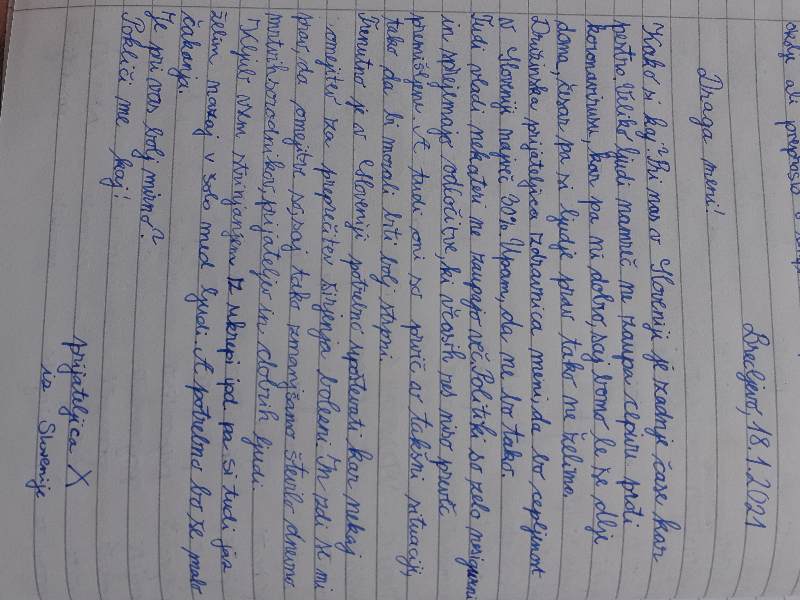 okolju ali preprosto v
Brezljevo, 18.1.2021
Draga meni!
Kako si kaj? Pri nas v Sloveniji je zadnje čase kar
pestro. Veliko ljudi namreč ne zaupa cepivu proti
koronavirusu, kar pa ni dobro, saj bomo le še dlje
doma, česar pa si ljudje prav tako ne želimo.
Družinska prijateljica zdravnica meni da bo cepljenost
v Sloveniji največ 30%. Upam, da ne bo tako.
Tudi vladi nekateri ne zaupajo več. Politiki so zelo nesigurni
in sprejemajo odločitve, ki včasih res niso preveč
premišljene. A tudi oni so prvič v takšni situaciji,
tako da bi morali biti bolj strpni.
Trenutno je v Sloveniji potrebno upoštevati kar nekaj
omejitev za preprečitev širjenja bolezni. In zdi se mi
prav, da omejitve so, saj tako zmanjšamo število dnevno
mrtvih sorodnikov, prijateljev in dobrih ljudi.
Kljub vsem strinjanjem z ukrepi ipd. pa si tudi jaz
želim nazaj v šolo med ljudi. A potrebno bo še malo
čakanja.
Je pri vas bolj mirno?
Pokliči me kaj!
prijateljica X
iz Slovenije